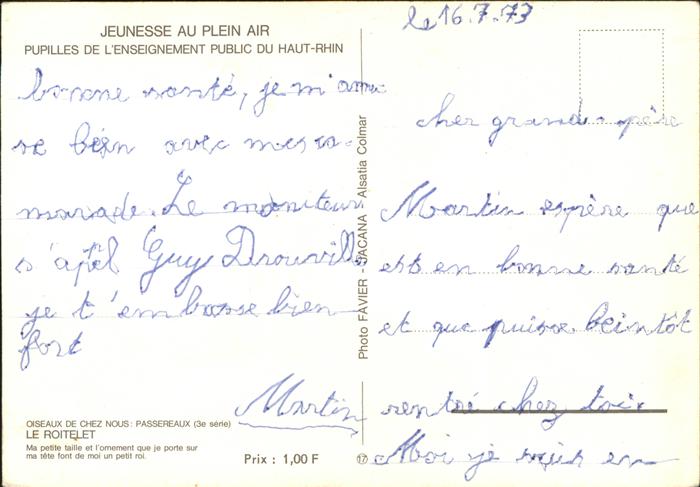 JEUNESSE AU PLEIN AIR
PUPILLES DE L'ENSEIGNEMENT PUBLIC DU HAUT-RHIN
le 16.7.73
cher grand-père
Martin espère que
est en bonne santé
et que puisse beintôt
rentré chez toi.
Moi je suis en
bonne santé, je m'amu
se bien avec mes ca-
marade. Le moniteur
s'apel Guy Drouville
je t'embrasse bien
fort
Martin
Photo FAVIER - JACANA Alsatia Colmar
OISEAUX DE CHEZ NOUS : PASSEREAUX (3e série)
LE ROITELET
Ma petite taille et l'ornement que je porte sur
ma tête font de moi un petit roi.
Prix : 1,00 F
17